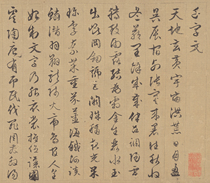 千字文
天地玄黃宇宙洪荒日月盈
昃辰宿列張寒來暑往秋收
冬藏閏餘成歲律呂調陽雲
騰致雨露結為霜金生麗水玉
出崑岡劍號巨闕珠稱夜光菓
珍李柰菜重芥薑海鹹河淡
鱗潛羽翔龍師火帝鳥官人皇
始制文字乃服衣裳推位讓國
有虞陶唐弔民伐罪周發